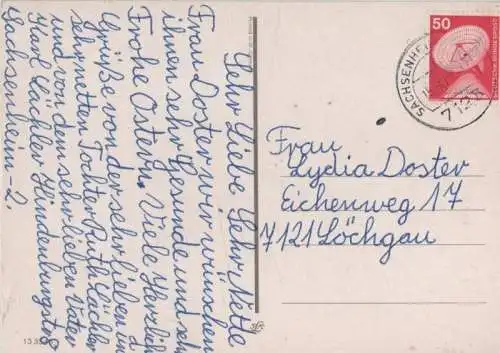 Sehr Liebe Sehr Nette
Frau Doster wir wünschen
ihnen sehr Gesunde und sehr
Frohe Ostern. Viele Herzlich
Grüße von der sehr lieben und
sehr netten Tochter Ruth Lächler
und von dem sehr lieben Vater
Karl Lächler Hindenburgstr
Sachsenheim-2.
Frau
Lydia Doster
Eichenweg 17
7121 Löchgau
50
SACHSENHEI
712
13 55